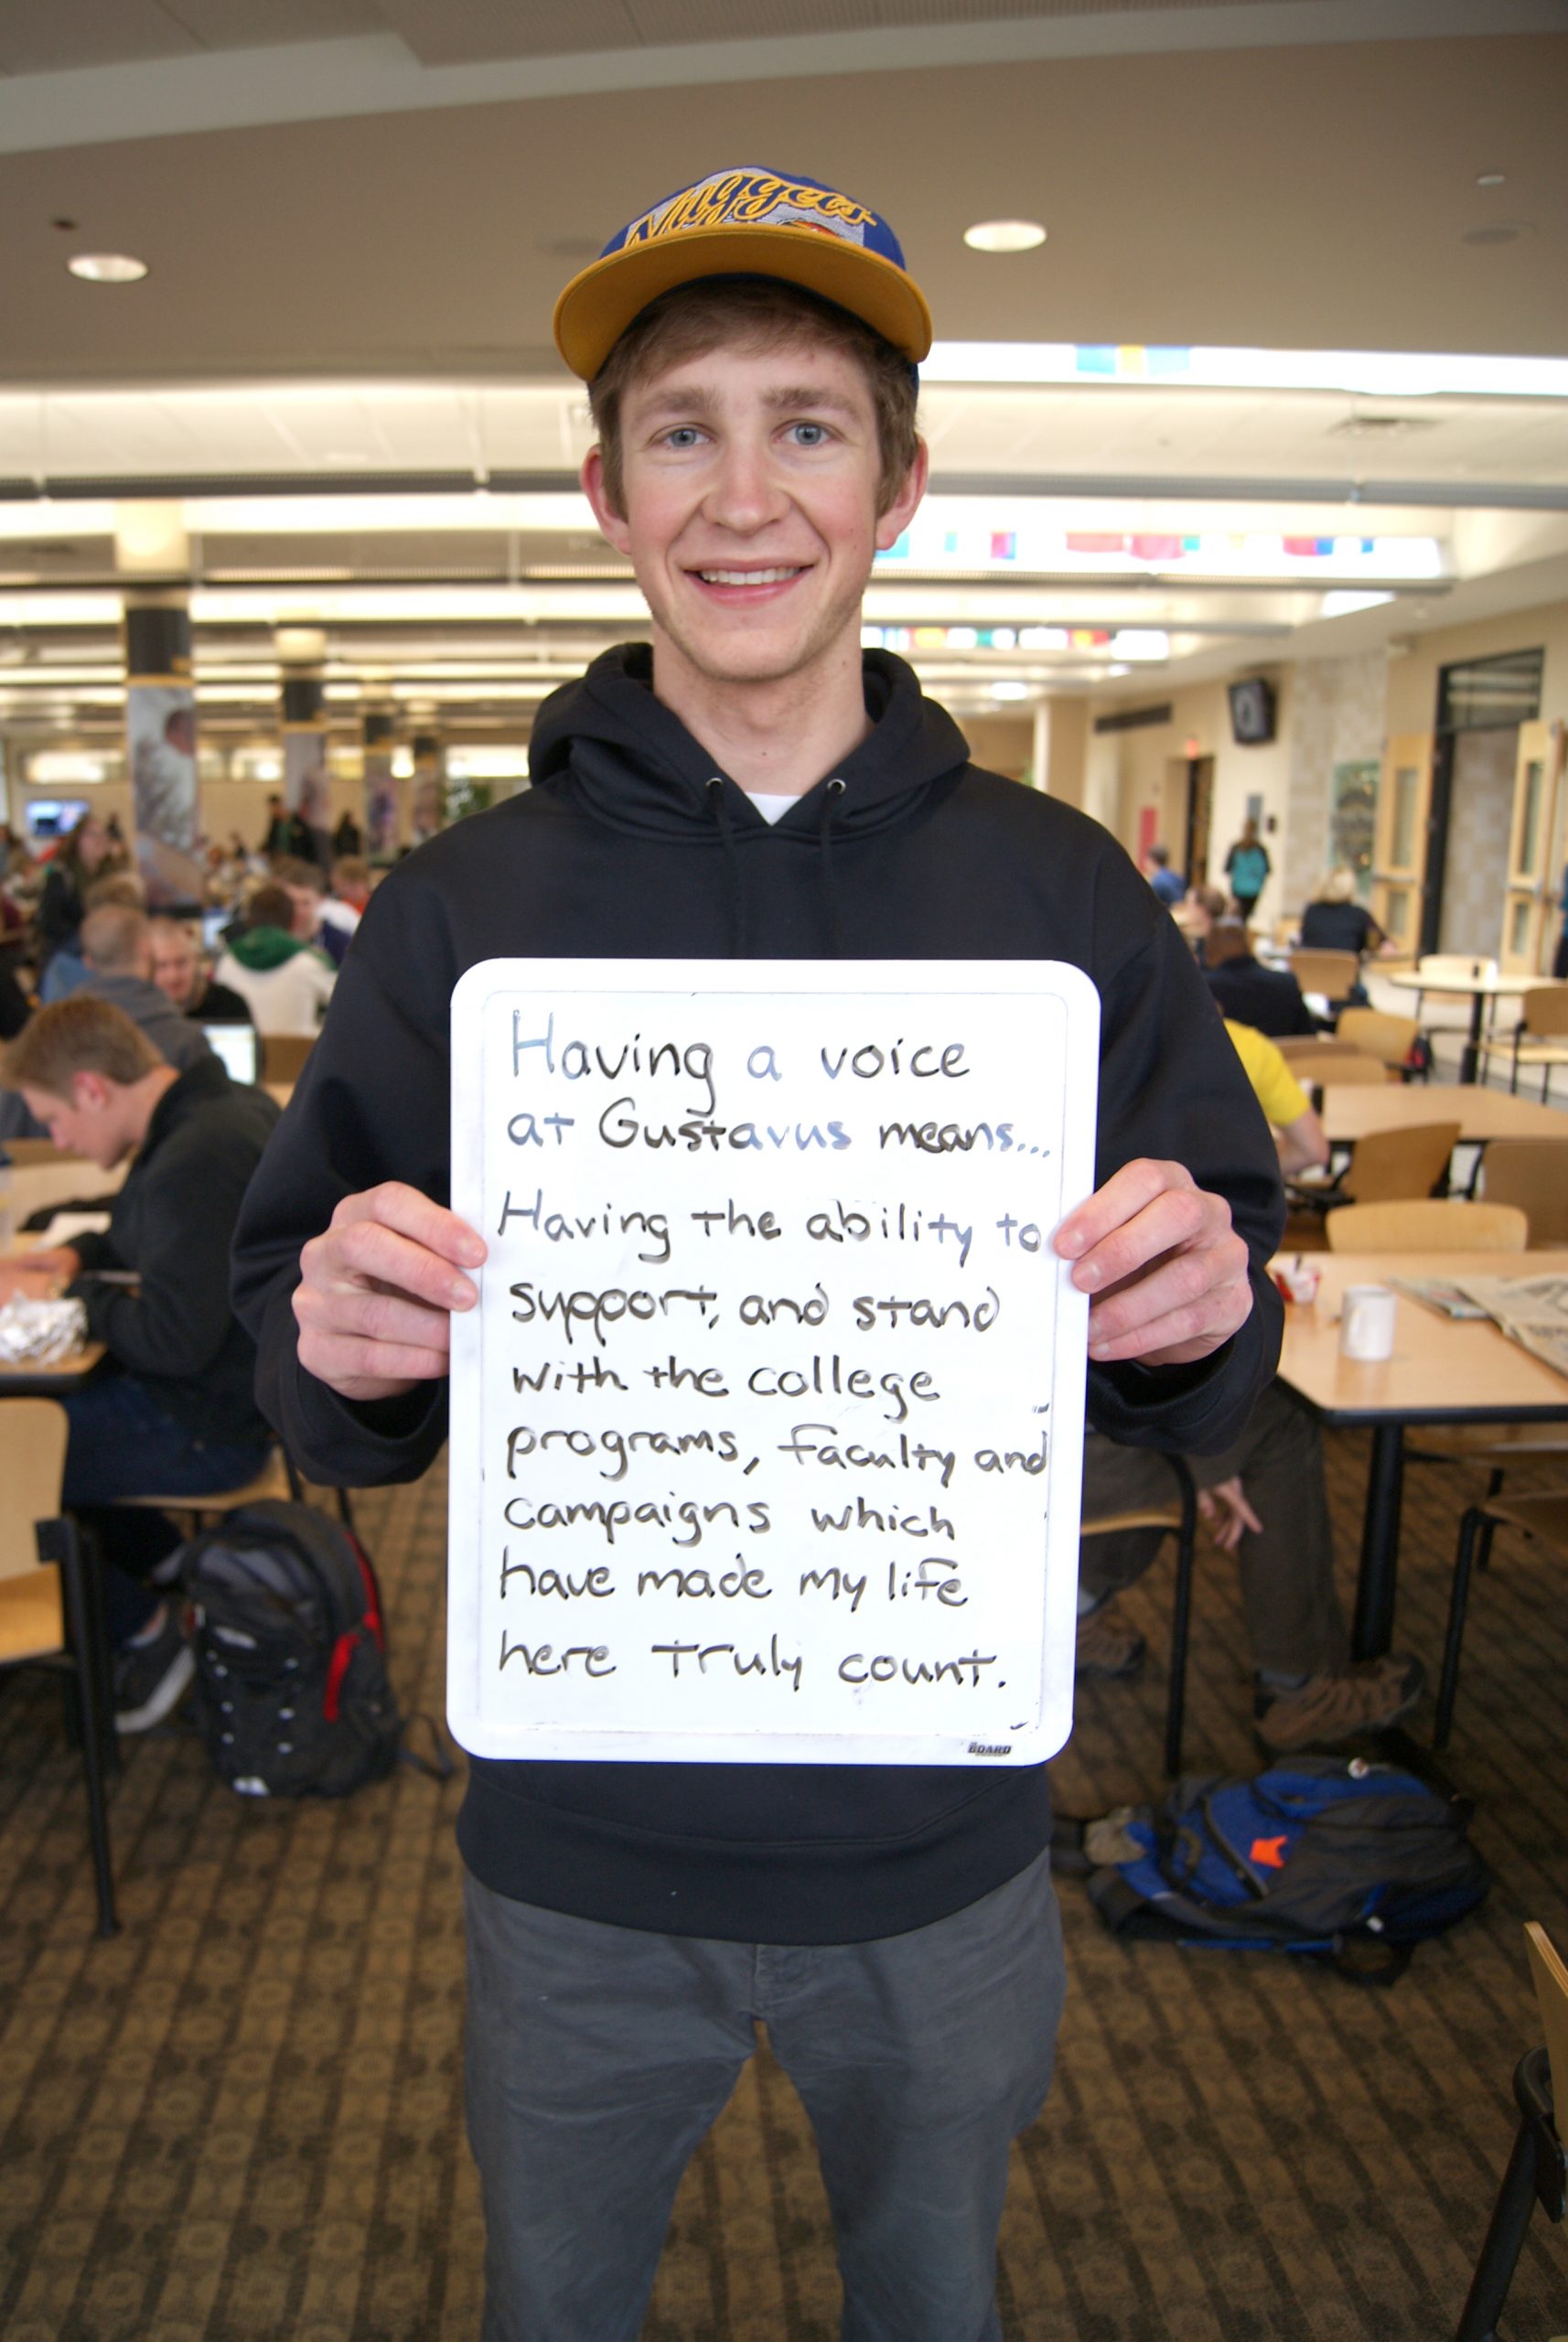 Nuggets
Having a voice
at Gustavus means...
Having the ability to
support, and stand
with the college
programs, faculty and
campaigns which
have made my life
here truly count.
THE BOARD